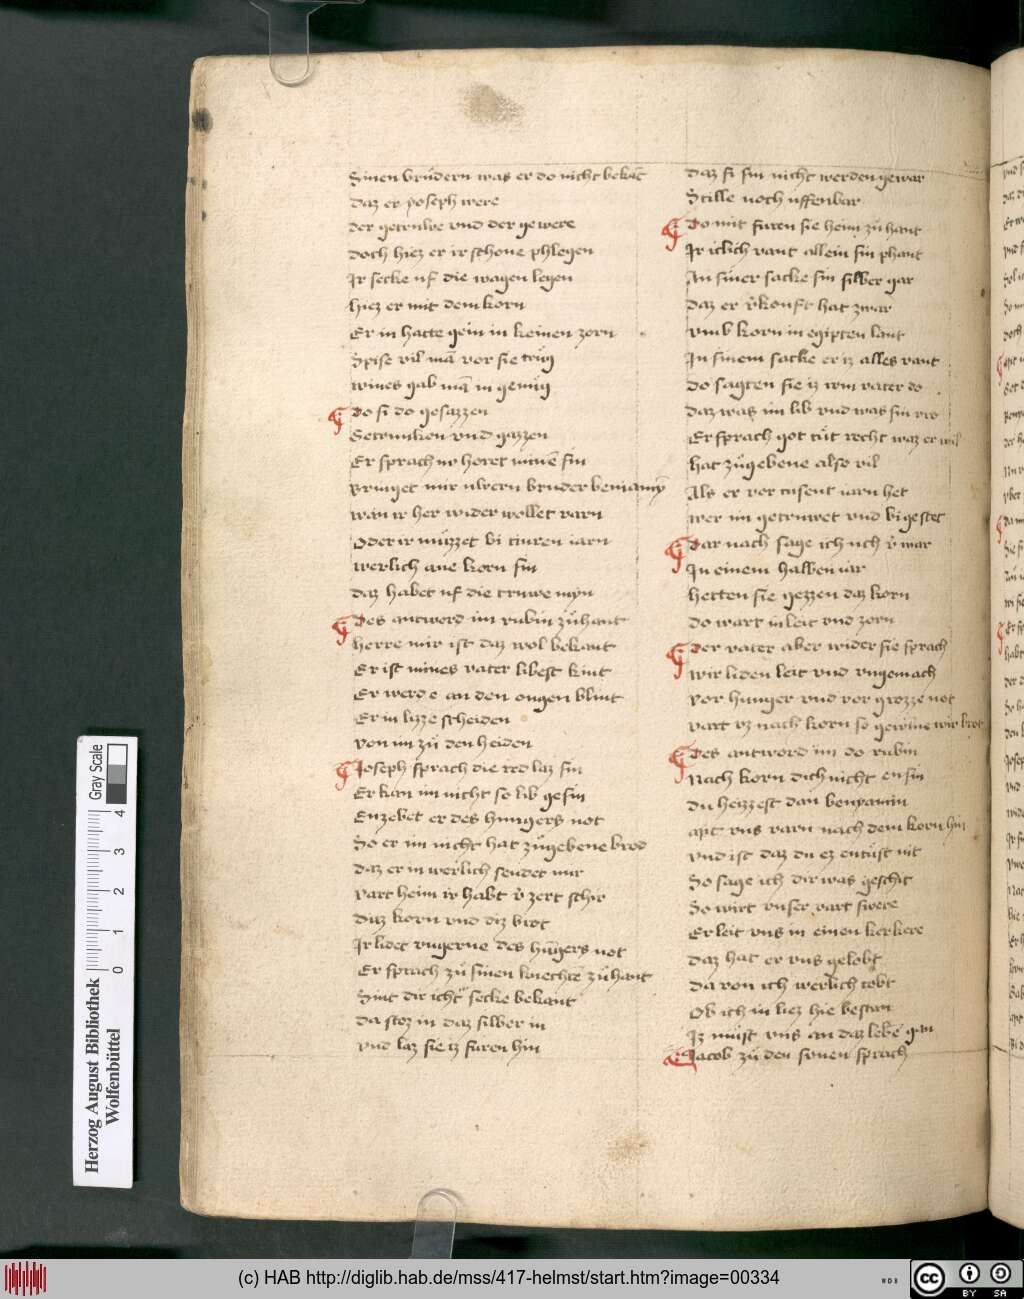 Sinen brůdern was er do nicht bekāt
daz er yoseph were
der getruwe vnd der gewere
doch hiez er ir schone phlegen
Ir secke uf die wagen legen
hiez er mit dem korn
Er in hatte gein in keinen zorn
Spise vil mā vor sie trůg
wines gab mā in genůg
Do si do gesazzen
Getrunken vnd gazzen
Er sprach nv horet minē sin
Bringet mir uwern bruder beniamȳ
wan ir her wider wollet varn
Oder ir můzzet bi turen iarn
werlich ane korn sin
daz habet uf die truwe myn
Des antword im rubin zůhant
herre mir ist daz wol bekant
Er ist mines vater libest kint
Er werde an den ougen blint
Er in lizze scheiden
von im zů den heiden
Joseph sprach die red laz sin
Er kan im nicht so lib gesin
Enzebet er des hungers not
So er im nicht hat zůgebene brod
daz er in werlich sendet mir
vart heim ir habt v̉zert schir
diz korn vnd diz brot
Ir lidet vngerne des hūgers not
Er sprach zů sinen knechtē zůhant
Sint dir icht secke bekant
da stoz in daz silber in
vnd laz sie iz furen hin
daz si sin nicht werden gewar
Stille noch uffenbar
Do mit furen sie heim zů hant
Ir iclich vant allein sin phant
An siner sacke sin silber gar
daz er v̉kouft hat zwar
vmb korn in egipten lant
In sinem sacke er iz alles vant
do sagten sie iz irm vater do
daz was im lib vnd was sin vro
Er sprach got tůt recht waz er wil
hat zůgebene also vil
Als er vor tusent iarn het
wer im getruwet vnd bi gestet
Dar nach sage ich uch v̉ war
In einem halben iar
hetten sie gezzen daz korn
do wart in leit vnd zorn
Der vater aber wider sie sprach
wir liden leit vnd vngemach
vor hunger vnd vor grozze not
vart vz nach korn so gewiñe wir brot
Des antword im do rubin
Nach korn dich nicht en sin
du heizzest dan benyamin
mit vns varn nach dem korn hin
vnd ist daz du ez entůst nit
So sage ich dir was geschit
So wirt vnser vart swere
Er leit vns in einen kerkere
daz hat er vns gelobt
da von ich werlich tobt
Ob ich in liez hie bestan
Iz můst vns an daz lebē gan
Jacob zů den sonen sprach
Herzog August Bibliothek
Wolfenbüttel
0 1 2 3 4
Gray Scale
(c) HAB http://diglib.hab.de/mss/417-helmst/start.htm?image=00334
WDB
cc BY SA